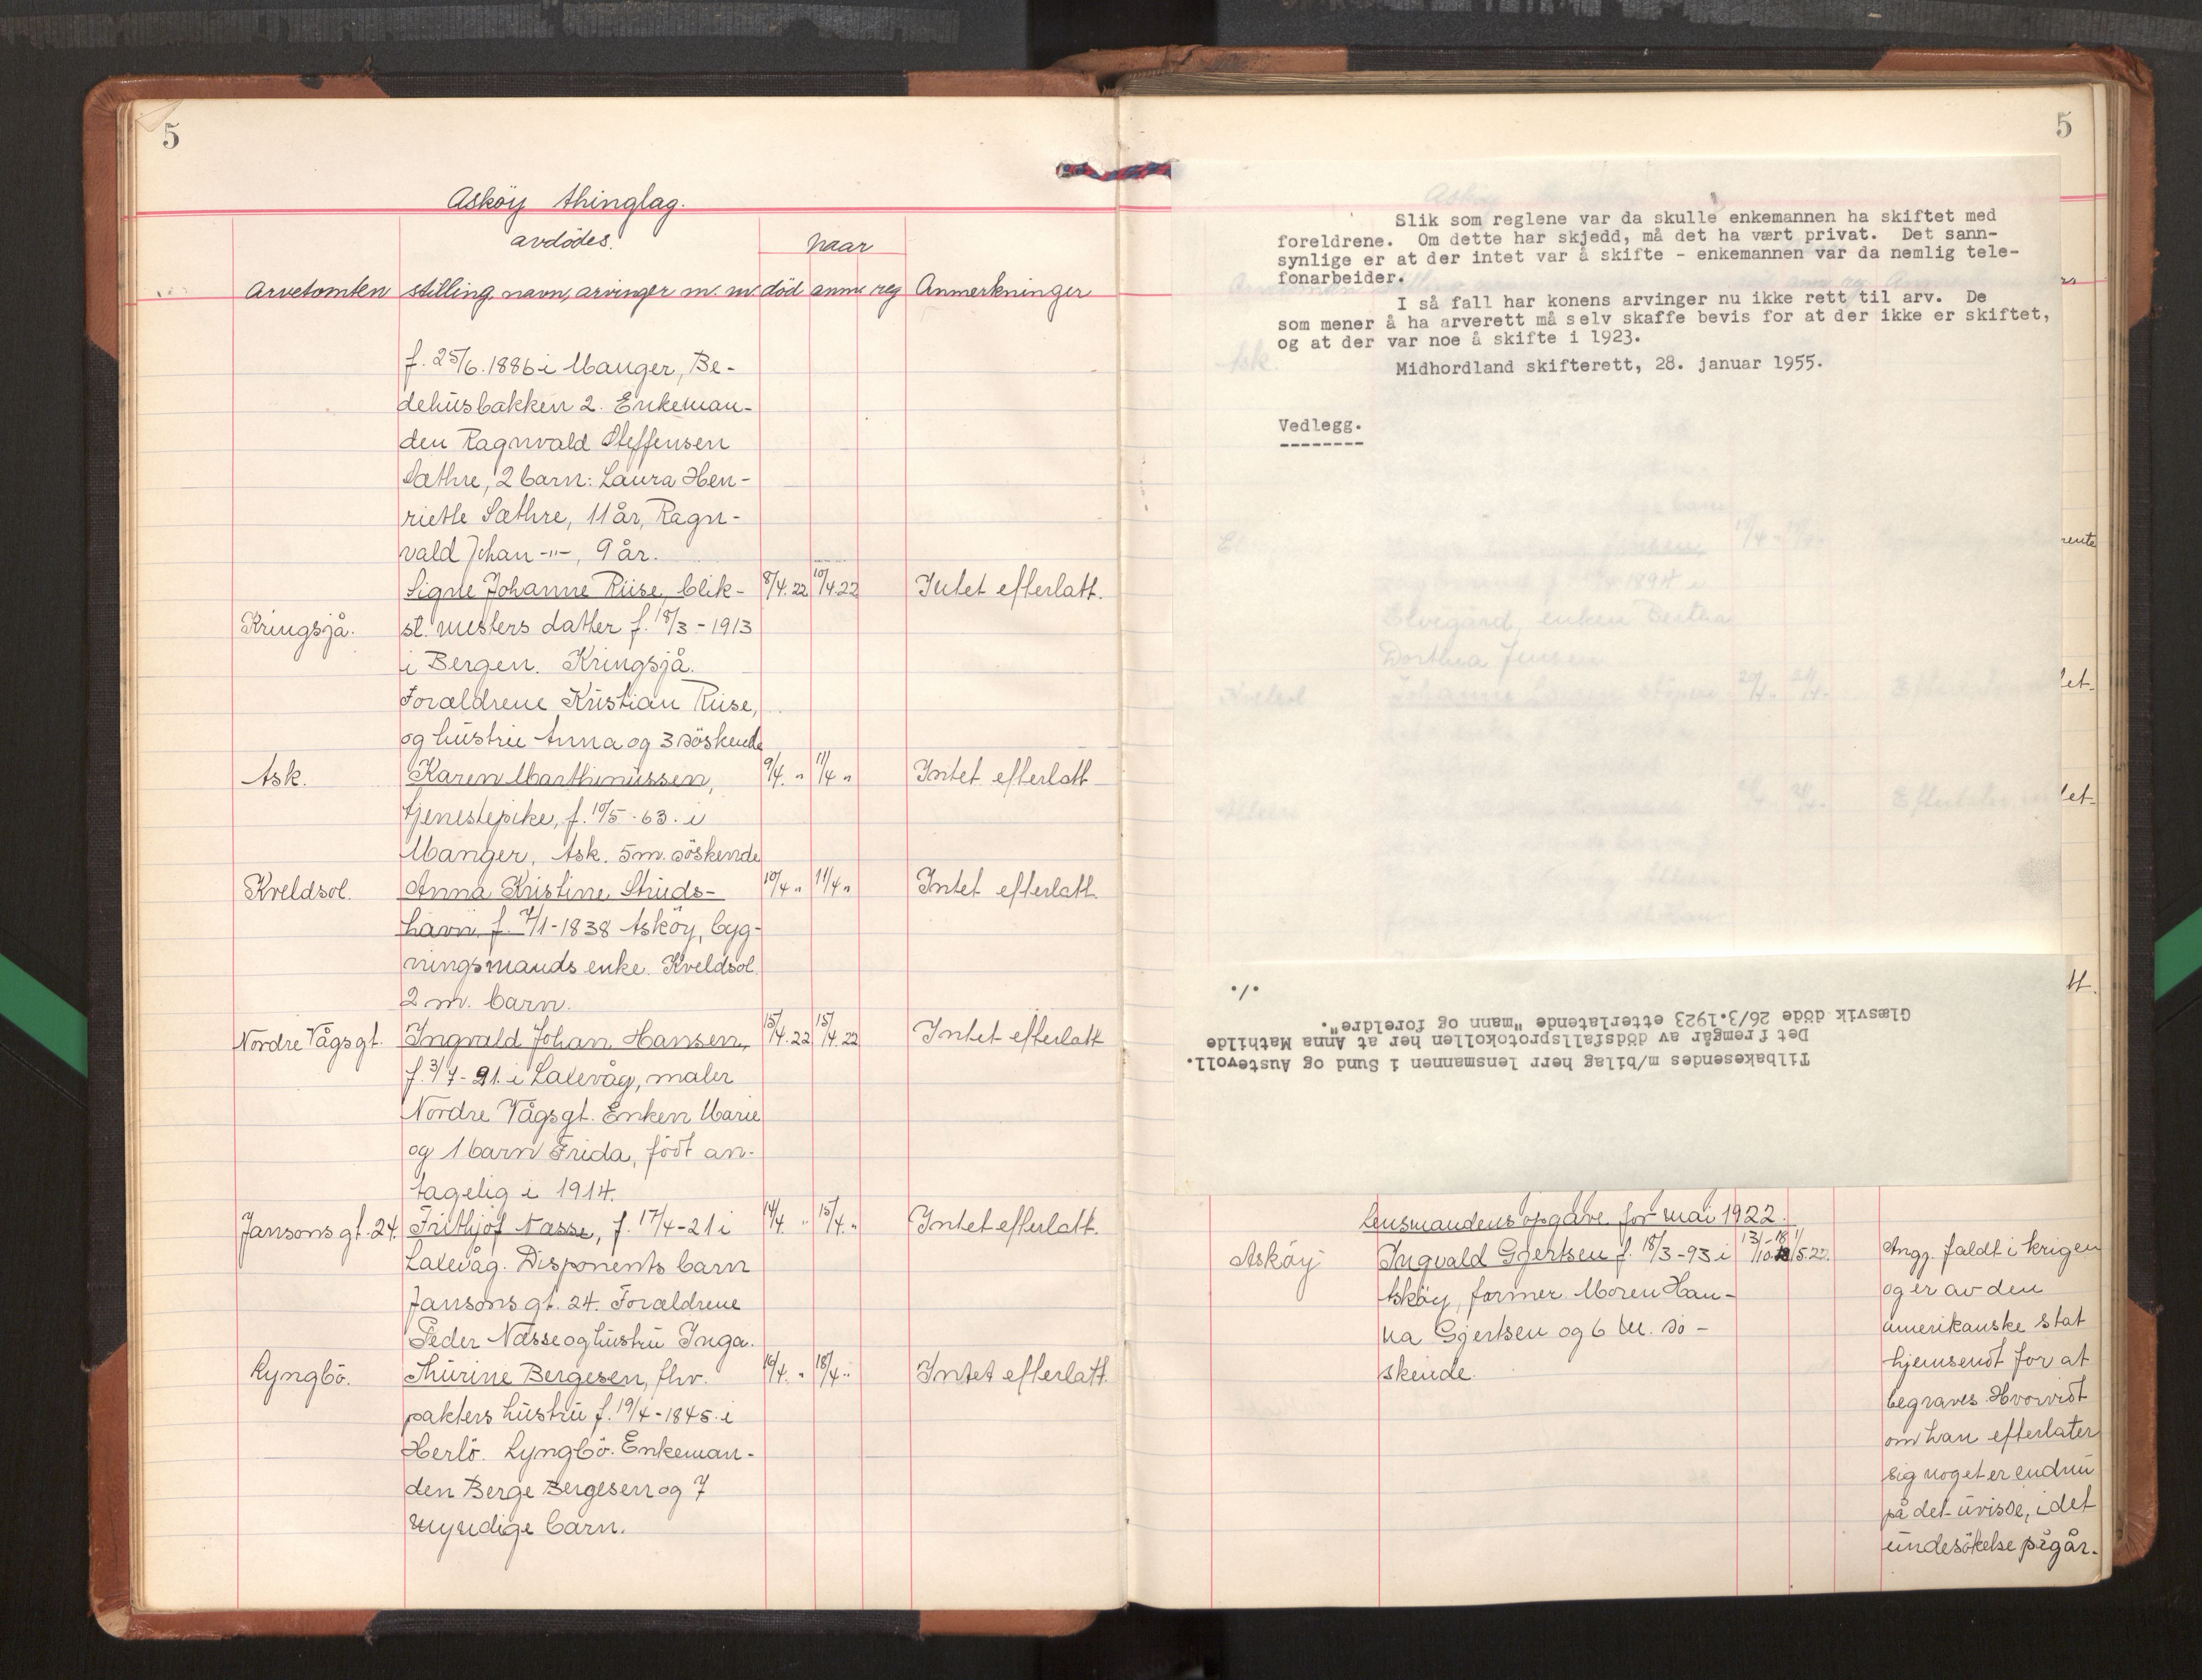 5
Asköy thinglag.
avdödes.
naar
Arvetomten stilling, navn, arvinger m. m. död anm reg Anmerkninger
f. 25/6. 1886 i Manger, Be-
dehusbakken 2. Enkeman-
den Ragnvald Steffensen
Sæthre, 2 barn: Laura Hen-
riette Sæthre, 11 år, Ragn-
vald Johan -"-, 9 år.
Signe Johanne Riise, blik- 8/4.22 10/4.22 Intet efterlatt.
Kringsjå. st. mesters datter f. 18/3-1913
i Bergen. Kringsjå.
Forældrene Kristian Riise,
og hustru Anna og 3 söskende
Ask. Karen Marthinussen, 9/4. " 11/4 " Intet efterlatt
tjenestepike, f. 10/5.63. i
Manger, Ask. 5 m. söskende
Kveldsol. Anna Kristine Struds- 10/4 " 11/4 " Intet efterlatt.
havn, f. 7/1-1838 Asköy, byg-
ningsmands enke. Kveldsol.
2 m. barn.
Nordre Vågsgt. Ingvald Johan Hansen, 15/4.22 15/4.22 Intet efterlatt
f. 3/7-91. i Laxevåg, maler
Nordre Vågsgt. Enken Marie
og 1 barn Frida, födt an-
tagelig i 1914.
Jansonsgt. 24. Frithjof Næsse, f. 17/4-21 i 14/4 " 15/4. " Intet efterlatt.
Laxevåg. Disponents barn
Jansonsgt. 24. Forældrene
Peder Næsse og hustru Inga.
Lyngbö. Thurine Bergesen, fhv. 16/4. " 18/4 " Intet efterlatt.
pakters hustru f. 19/4-1845. i
Herlö. Lyngbö. Enkeman-
den Berge Bergesen og 7
myndige barn.
5
Slik som reglene var da skulle enkemannen ha skiftet med
foreldrene. Om dette har skjedd, må det ha vært privat. Det sann-
synlige er at der intet var å skifte - enkemannen var da nemlig tele-
fonarbeider.
I så fall har konens arvinger nu ikke rett til arv. De
som mener å ha arverett må selv skaffe bevis for at der ikke er skiftet,
og at der var noe å skifte i 1923.
Midhordland skifterett, 28. januar 1955.
Vedlegg.
--------
Tilbakesendes m/bilag herr lensmannen i Sund og Austevoll.
Det fremgår av dödsfallsprotokollen her at Anna Mathilde
Glæsvik döde 26/3.1923 etterlatende "mann og foreldre".
./.
Lensmandens opgave for mai 1922.
Asköy Ingvald Gjertsen f. 18/3-93 i 13/10-18 1/5.22. Angj. faldt i krigen
Asköy, former. Moren Han- og er av den
na Gjertsen og 6 m. sö- amerikanske stat
skende. hjemsendt for at
begraves. Hvorvidt
om han efterlater
sig noget er endnu
på det uvisse, i det
undesökelse pågår.